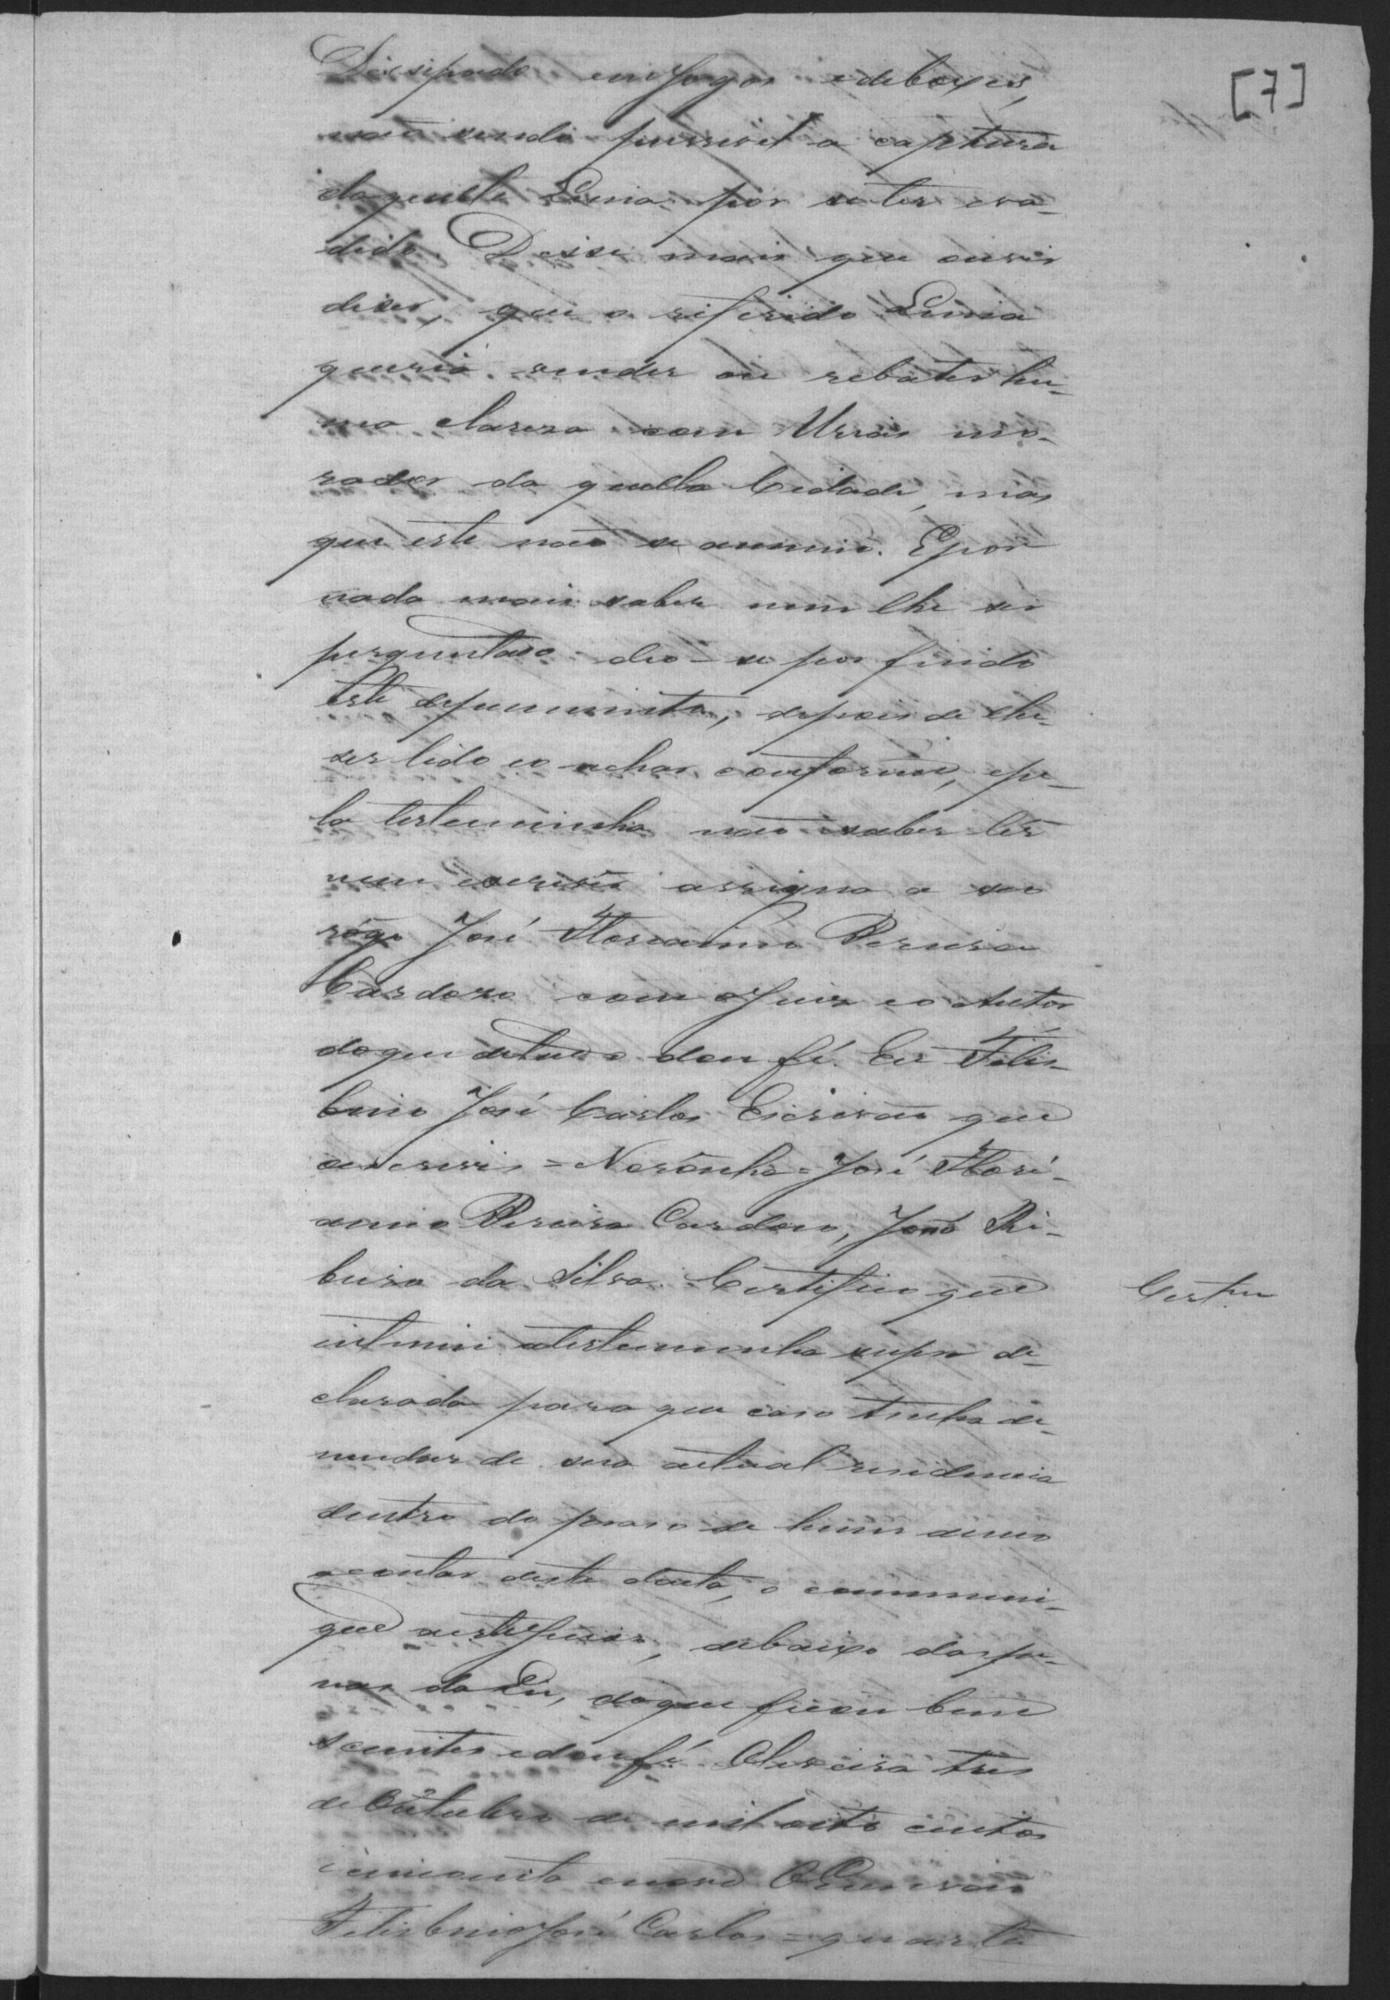 [7]
Dissipado em jogos e deboxes,
não sendo possivel a captura
daquelle Lima por se ter eva-
dido. Disse mais que ouvio
diser, que o referido Lima
queria vender ou rebater hu-
ma claresa com Urias mo-
rador da quella Cidade, mas
que este não se annuio. E por
nada mais saber nem lhe ser
perguntado deo-se por findo
este depuimento, depois de lhe
ser lido eo achar conforme, epe-
la testeminha não saber lêr
nem escrever assigna a seo
rôgo José Floriannno Pereira
Cardozo com o Juiz eo Autor
do que detudo dou fé. Eu Felis-
bino José Carlos Escrivão que
o escrevi = Noronha = José Flori-
anno Pereira Cardozo, João Ri-
beiro da Silva. Certifico que
Certam
intimei a testemunha supra de-
clarada para que caso tenha de
mudar de sua actual residencia
dentro do praso de hum anno
a contar desta data, o communi-
que a este Juizo, debaixo das pe-
nas da Lei, do que ficou bem
sciente e dou fé. Oliveira tres
de Outubro de mil oito centos
cincoenta e nove O Escrivão
Felisbino José Carlos = quarta